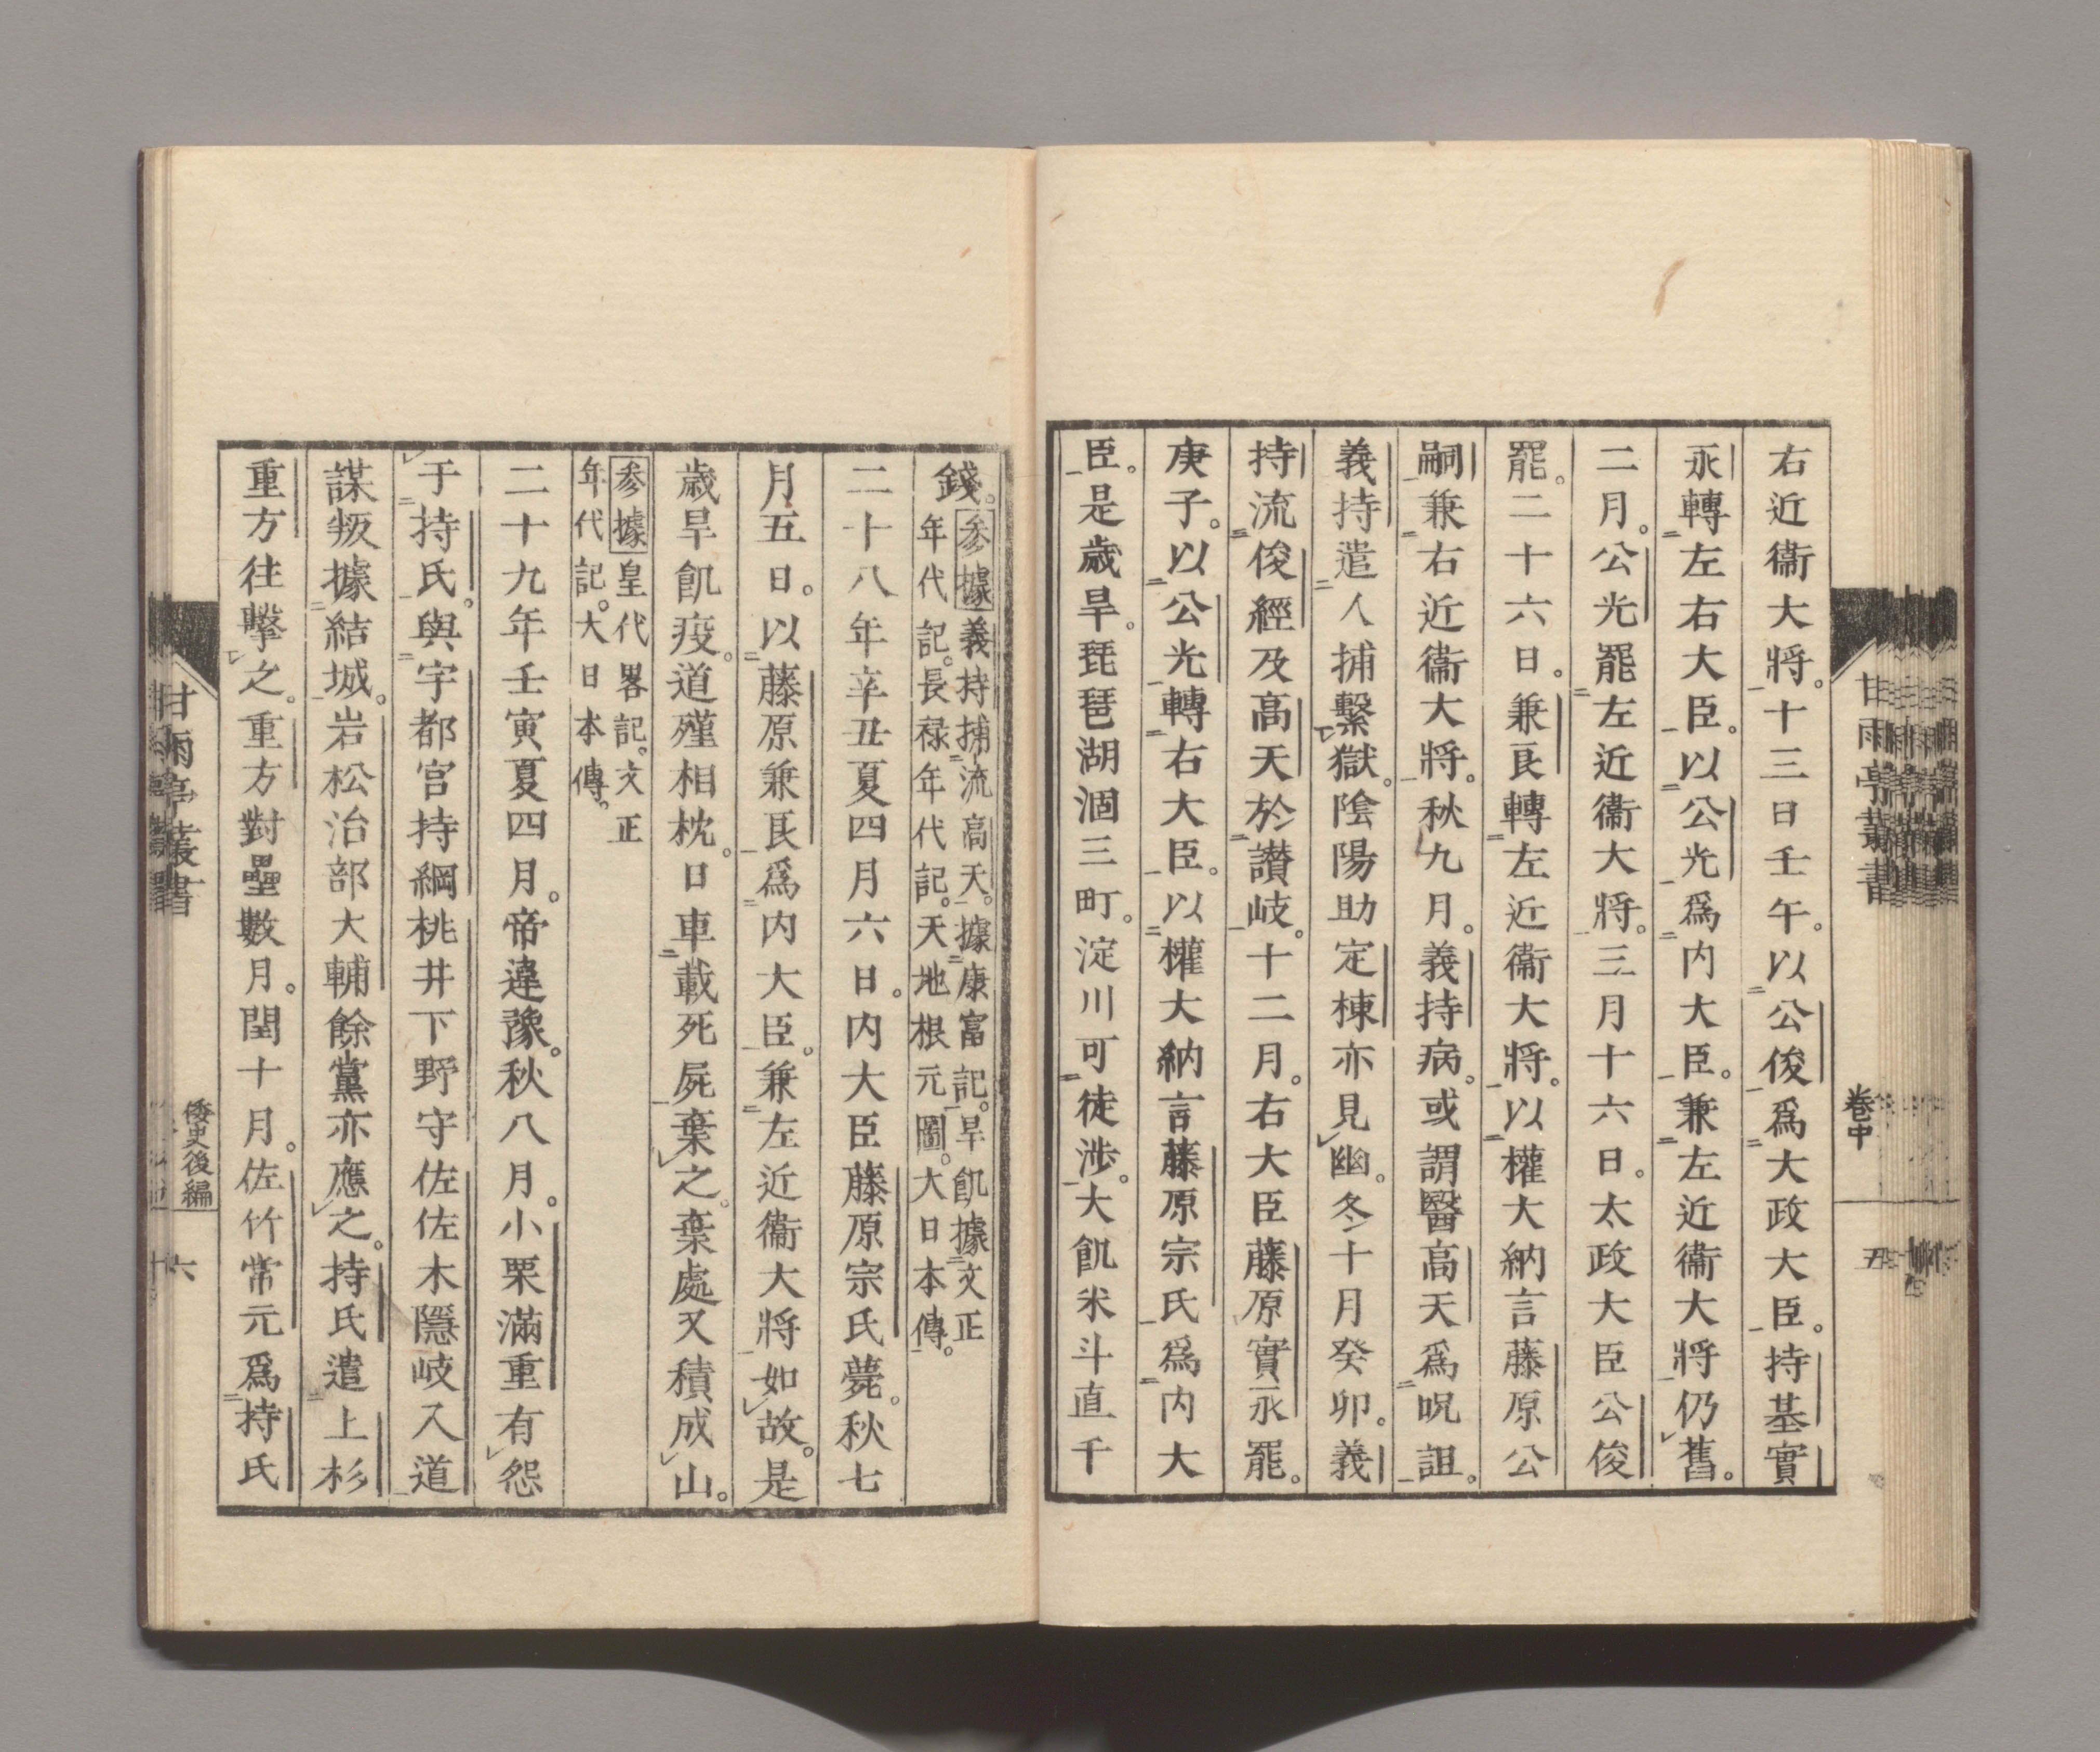 右近衞大將。十三日壬午。以公俊爲大政大臣。持基實
永轉左右大臣。以公光爲内大臣。兼左近衞大將仍舊。
二月。公光罷左近衞大將。三月十六日。太政大臣公俊
罷。二十六日。兼良轉左近衞大將。以權大納言藤原公
嗣兼右近衞大將。秋九月。義持病。或謂醫高天爲呪詛。
義持遣人捕繋獄。陰陽助定棟亦見幽。冬十月癸卯。義
持流俊經及高天於讃岐。十二月。右大臣藤原實永罷。
庚子。以公光轉右大臣。以權大納言藤原宗氏爲内大
臣。是歳旱。琵琶湖涸三町。淀川可徒渉。大飢米斗直千
甘雨亭叢書
卷中
五
錢。參據義持捕流高天。據康富記。旱飢據文正
年代記。長禄年代記。天地根元圖。大日本傳。
二十八年辛丑夏四月六日。内大臣藤原宗氏薨。秋七
月五日。以藤原兼良爲内大臣。兼左近衞大將如故。是
歳旱飢疫。道殣相枕。日車載死屍棄之。棄處又積成山。
參據皇代畧記。文正
年代記。大日本傳。
二十九年壬寅夏四月。帝違豫。秋八月。小栗滿重有怨
于持氏。與宇都宮持綱桃井下野守佐佐木隱岐入道
謀叛據結城。岩松治部大輔餘黨亦應之。持氏遣上杉
重方往擊之。重方對壘數月。閏十月。佐竹常元爲持氏
甘雨亭叢書
倭史後編
六